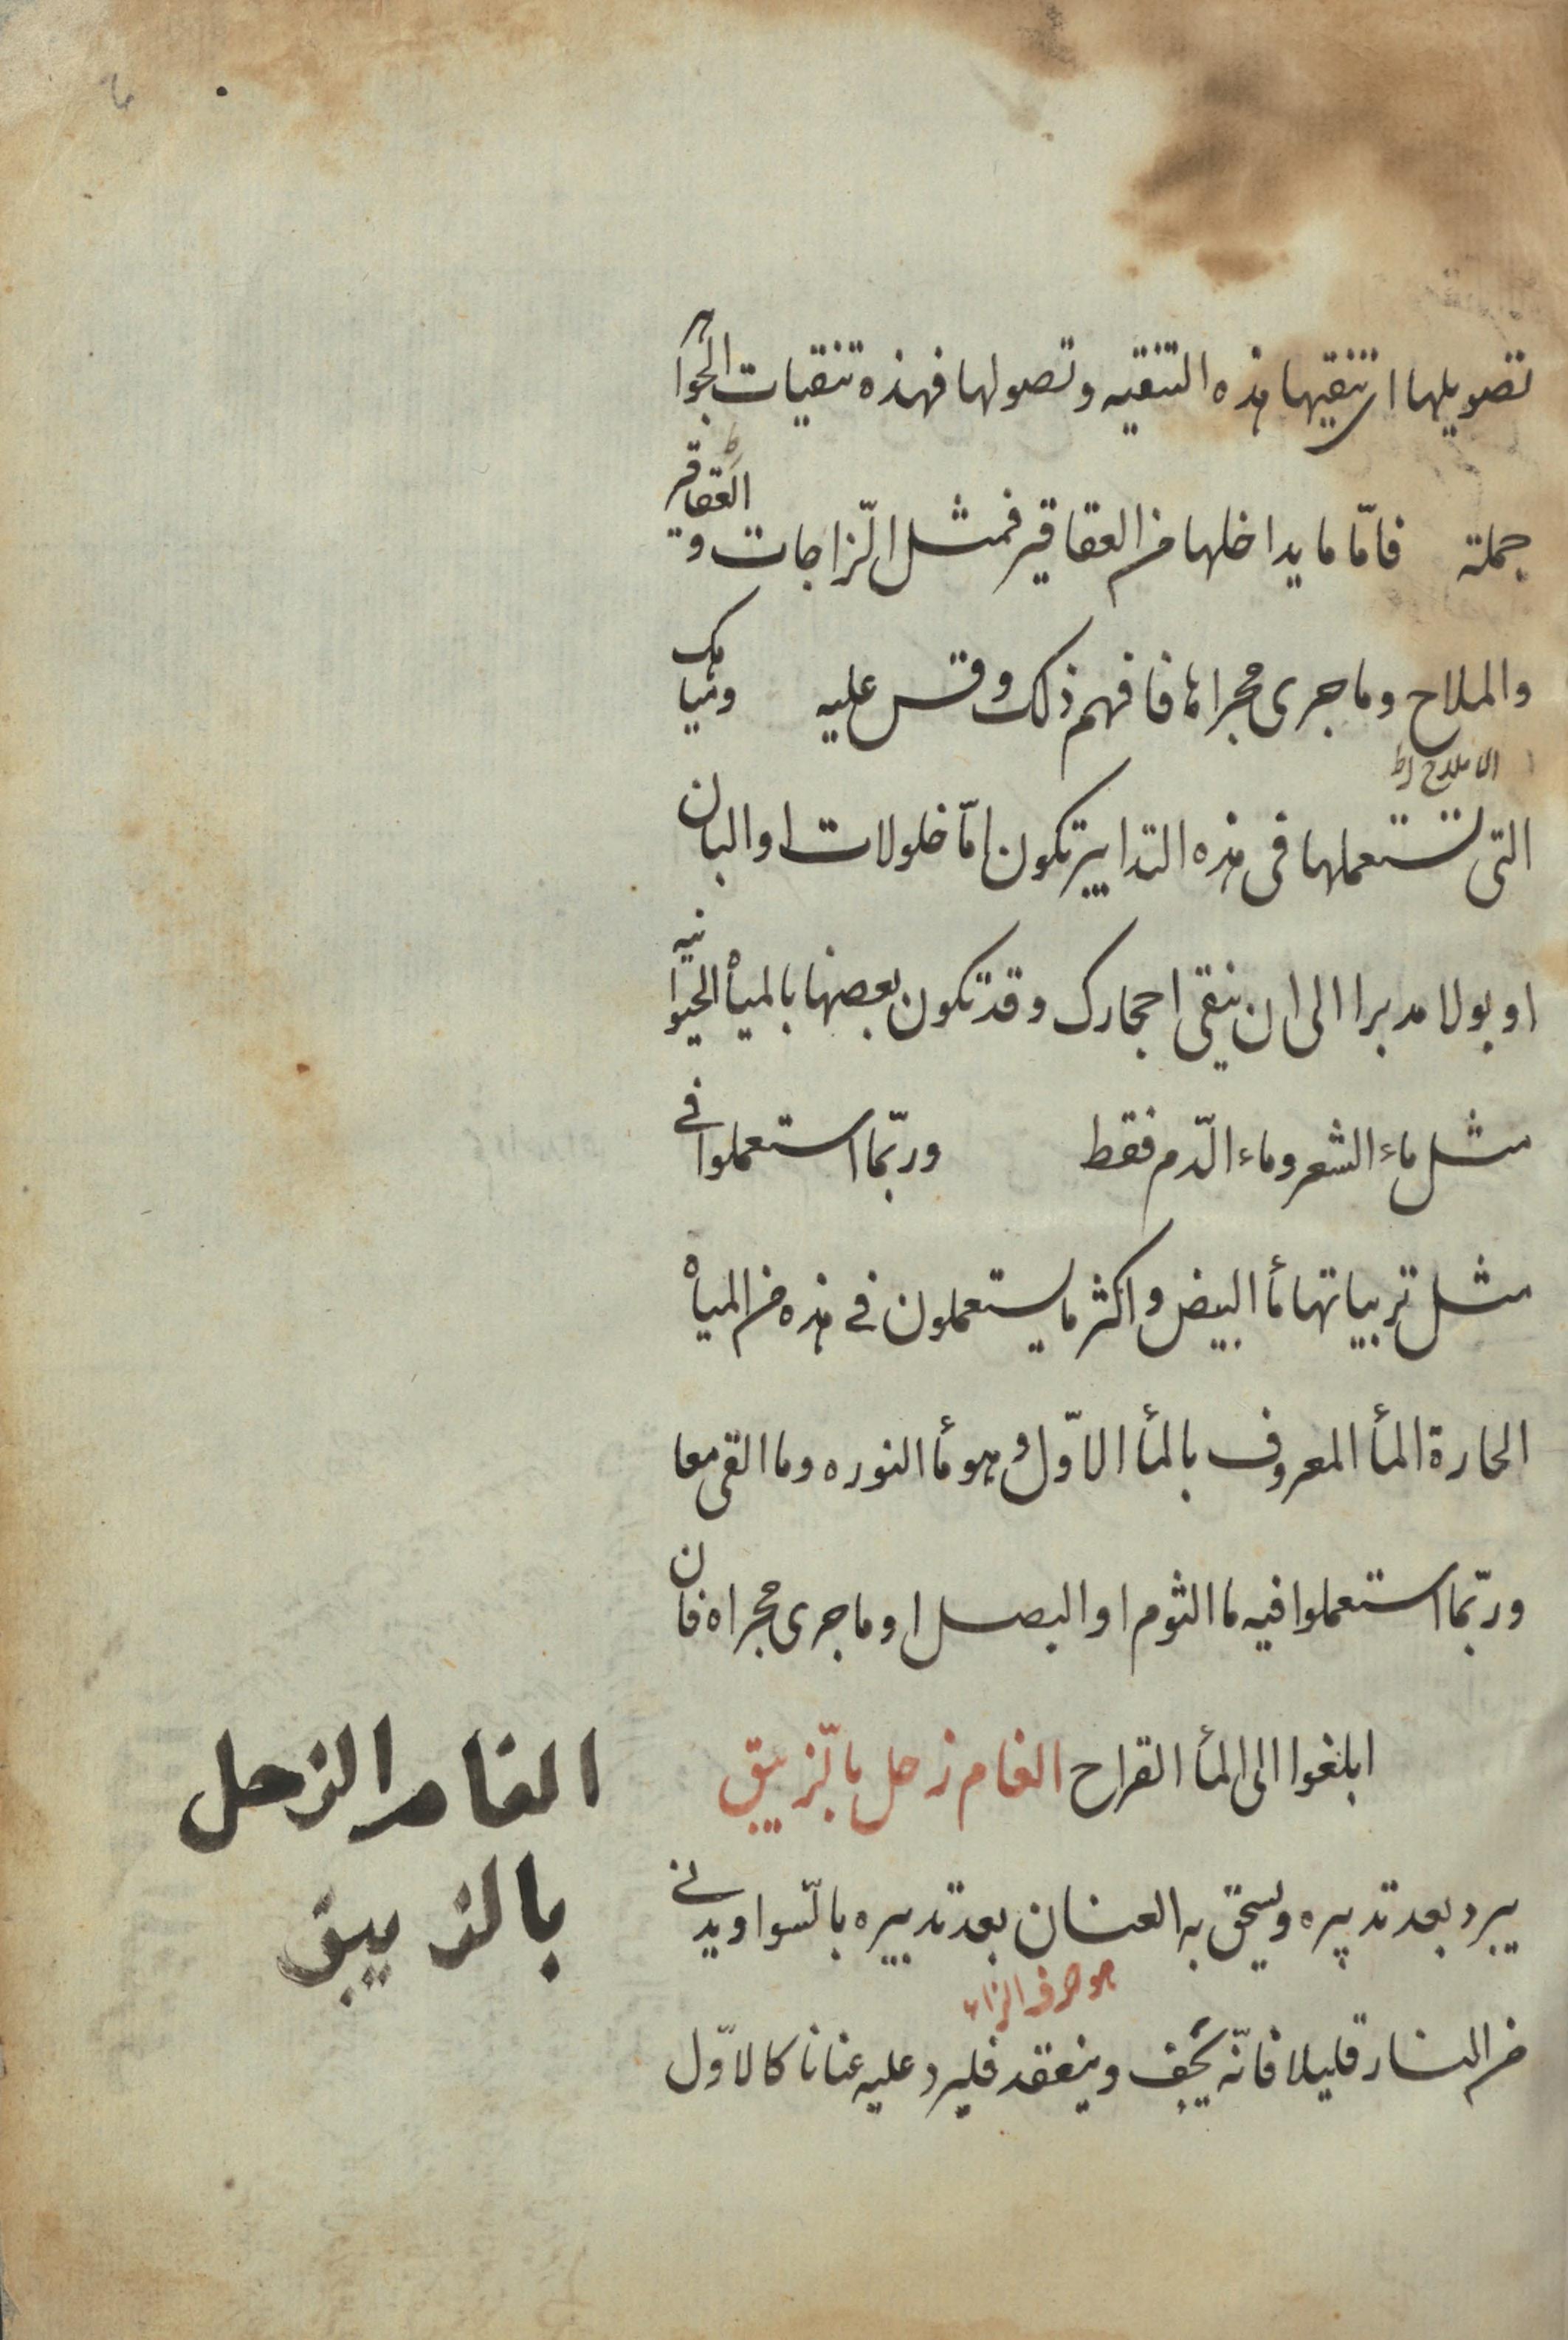 تصويلها اى تنقيها هذه التنقيه وتصولها فهذه تنقيات الجوا
جملة فامّا ما يداخلها من العقاقير فمثل الزّاجات و العقاقير
والملاح وما جرى مجراها فافهم ذلك وقس عليه ومياهك
الاملاح
التى تستعملها فى هذه التدابير تكون امّا خلولات او البان
او بولا مدبرا الى ان ينقى احجارك وقد تكون بعضها بالميأه الحيوانيه
مثل ماء الشعر وماء الدّم فقط وربّما استعملوا فى
مثل تربياتها مأ البيض واكثر ما يستعملون فى هذه من الميأه
الحارة المأ المعروف بالمأ الاوّل وهو مأ النوره وما القى معا
وربّما استعملوا فيه ما الثوم او البصل او ما جرى مجراه فان
ابلغوا الى المأ القراح الغام زحل بالزّيبق
الغام الزحل
بالزيبق
يبرد بعد تدبيره ويسحق به العنان بعد تدبيره بالسّواد ويدنى
هو حرف الزاء
من النار قليلا فانّه يجف وينعقد فليرد عليه عنانا كالاوّل